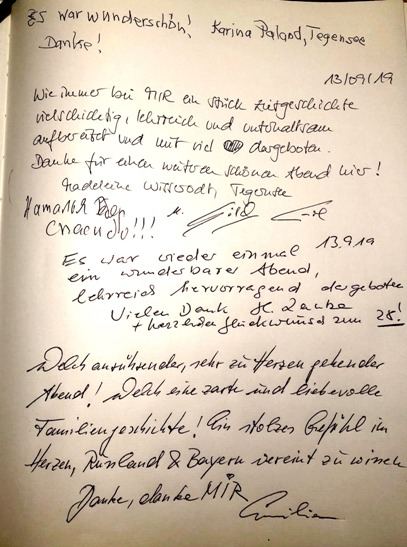 Es war wunderschön! Karina Paland, Tegernsee
Danke!
13/09/19
Wie immer bei MIR ein Stück Zeitgeschichte
vielschichtig, lehrreich und unterhaltsam
aufbereitet und mit viel dargeboten.
Danke für einen weiteren schönen Abend hier!
Madeleine Tegernsee
Наталья
Спасибо!!!
13.9.19
Es war wieder einmal
ein wunderbarer Abend,
lehrreich hervorragend dargeboten
Vielen Dank H.
+ herzlichen Glückwunsch zum 28!
Welch anrührender, sehr zu Herzen gehender
Abend! Welch eine zarte und liebevolle
Familiengeschichte! Ein stolzes Gefühl im
Herzen, Russland & Bayern vereint zu wissen
Danke, danke MIR